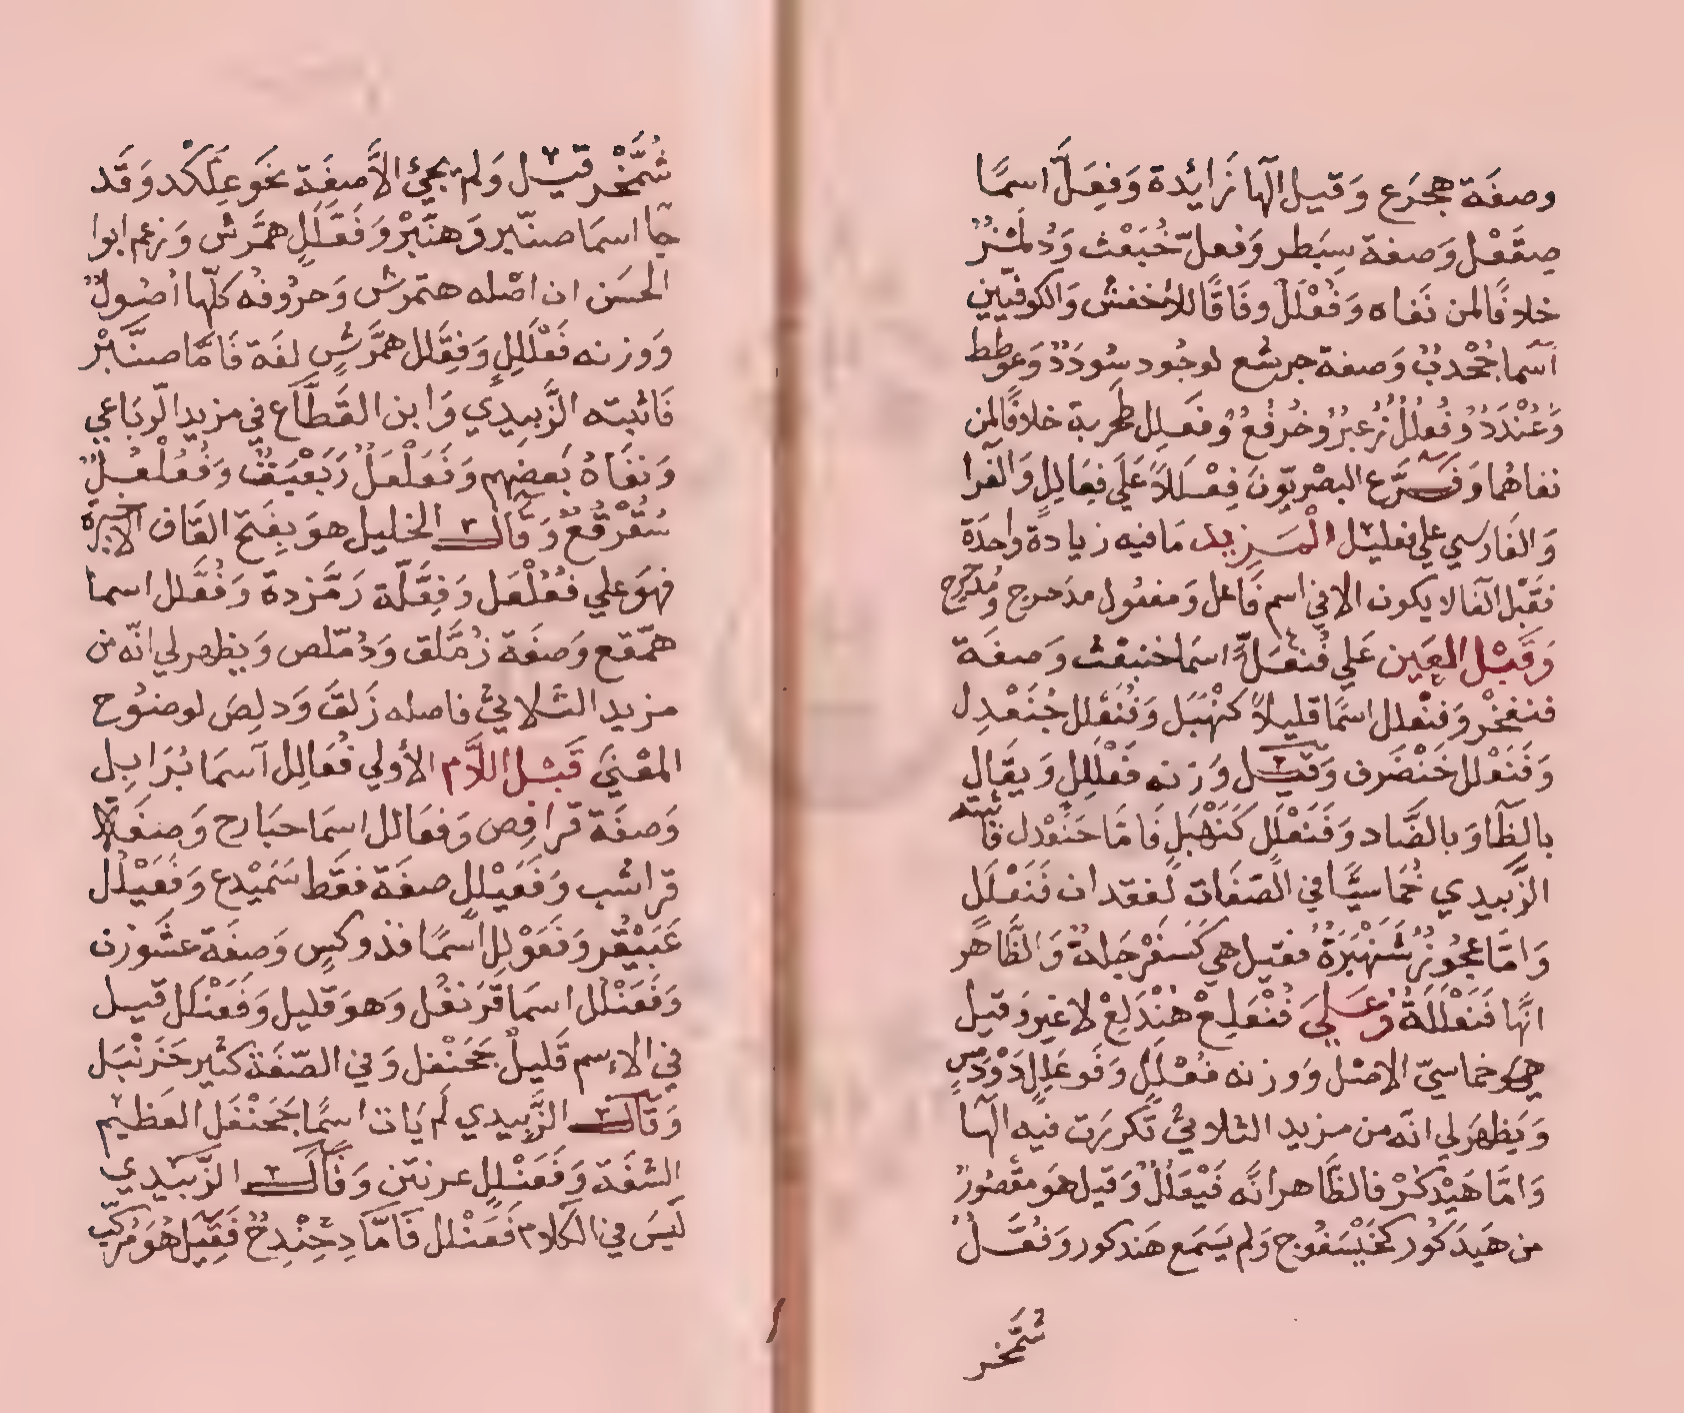 وصفَة هِجرَع وَقيل الهَا زَائِدة وَفِعَلّ اسمًا
صِقَعْل وَصفة سِبَطر وَفُعلّ خُبَعْث وَدُلَمْزٌ
خلافًا لمن نَفاه وَفُعْلَل وفَاقًا للأخفش وَالكوفيّين
اسما جُخْدبٌ وَصفة جرشع لوجُود سُودَدٌ وَعُوطط
وَعُنْدَدٌ وفُعْلِلُ زُعبِرٌ وخُرفُعٌ وفَعَلِل طحرَبة خلافًا لمن
نفاهُما وَفَــرَّع البصْريّون فِعْلَلاً عَلَى فِعَالِل وَالفرا
وَالفارسي علي فعليل المَــزيد مَا فيه زيادة واحدَة
فقَبْل الفا لا يكون الا في اسم فَاعل وَمفعُول مدَحرِج وَمُدَحْرَج
وَقَبْل العَين عَلي فُنعَلّ اسما خنبعث وَصفَة
فنفخْر وَفنْعلل اسمًا قليلاً كَنْهبَل وَفُنْعَلِل جُنَعْدِل
وَفَنَعْلل خَنْضَرف وَقيـل وَزنه فَعْلَلِل وَيقَال
بالظّا وَبالضَّاد وَفَنَعْلُل كَنَهْبُل فَامّا حَنَوْدل فاثبته
الزَّبيدي خُماسيًّا في الصّفَات لفقدان فَنَعْلَل
وَامَّا عجُوزٌ شَنَهْبَرَةٌ فقيل هي كَسَفَرْجَلةٌ وَالظَّاهر
انَّها فَنَعْلَلَةٌ وَعَــلي فُنْعَلِعْ هُنْدَلِعْ لا غير وَقيل
هو خماسيّ الاصْل وَوزنه فُعْلَلِل وَفَوعَلِل دَوْدَمِس
وَيَظهَر لي انّه من مزيد الثلاثي تَكررَت فيه الهَا
وَامَّا هَيْدكُرْ فالظَّاهر انَّه فَيْعَلُلٌ وَقيل هو مقصُورٌ
من هَيدَكُور كخَيْسَفُوج وَلم يَسَمع هَندكور وَفُعَّــلٌّ
شُمَّخر
شُمَّخْر قيْل وَلم يجئ الاَّصفَة نحَو عِلّكْد وَقَد
جَا اسمَا صنّبر وَهنَّبْرْ وَفَعَّلِل همَّرش وَزعم ابوا
الحسَن ان اصْله هنمَرش وَحرُوفُه كلّها اُصُولٌ
وَوزنه فَعْلَلِلٌ وَفِعَّلل همَّرِش لغة فَامَّا صنَّبْرْ
فَاثبته الزَّبيدي وَابن القَطَّاع في مزيد الرّبَاعي
وَنفَاهُ بَعضهم وَفَعَلْعَلٌ زَبَعْبَقٌ وَفُعُلْعُلٌ
سُقُرْقُعٌ وَقَالَ الخليل هوَ بفَتح القَاف الاخيرة
فهوَ علي فُعُلْعَل وَفِعَّلّة زِمَّرْدة وَفُعَّلل اسما
همّقع وَصفَة زُمَّلق وَدُمّلص وَيظهر لي انّه من
مزيد الثَلاثي فاصله زَلقَ وَدلِصَ لوضُوح
المعْنَى قَبْل اللاَّم الأولي فُعَالِل اسمَا بُرَابِل
وَصفَة قُرافِص وَفعَالل اسمَا حبَارج وَصفَة
قراشب وَفَعَيْلل صفَة فقَط سَمَيْدع وَفَعَيْلُل
عَبَيْقُر وَفَعَوْلل اسمًا فدوكس وَصفَة عشَوْزن
وَفَعَنْلُل اسمَا قَرَنفُل وَهوَ قليل وَفَعَنْلَل قيل
في الاسم قَليلٌ جَحَنْفل وَفي الصّفَة كثير حَزَنْبَل
وَقَال الزَّبيدي لَم يَات اسمًا جَحَنْفَل العَظيم
الشفَة وَفَعَنْلِل عرنتن وَقَال الزَّبيدي
لَيسَ في الكلام فَعَنْلل فَامَّا دِحِنْدِحٌ فَقيْل هُوَ مُركّب